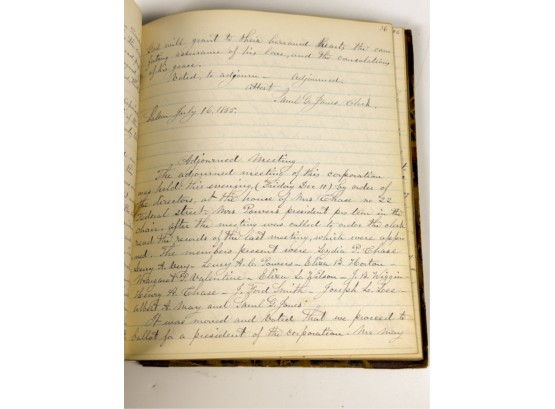 God will grant to their bereaved hearts the com
forting assurance of his love, and the consolations
of his grace.
Voted, to adjourn — Adjourned
Attest
Saml G. Jones Clerk.
Salem July 16, 1885.
Adjourned Meeting
The adjourned meeting of this corporation
was held this evening, (Friday Dec 11) by order of
the directors, at the house of Mrs Chase no 22
Federal street; Mrs Powers president pro tem in the
chair, after the meeting was called to order the clerk
read the records of the last meeting, which were appro
ved. The members present were Lydia P. Chase
Lucy A. C. Powers — Eliza B.
Margaret G. Valentine — Eliza L. — J. N. Wiggin
Henry A. Chase — J. Ford Smith — Joseph L. Lee
Albert A. May and Saml G. Jones
It was moved and Voted That we proceed to
ballot for a president of the corporation. Mrs May